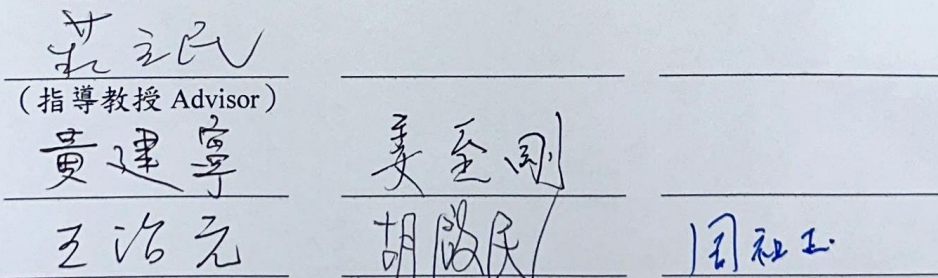 莊立民
(指導教授 Advisor)
黃建寧 姜至剛
王治元 胡啟民 周祖玉